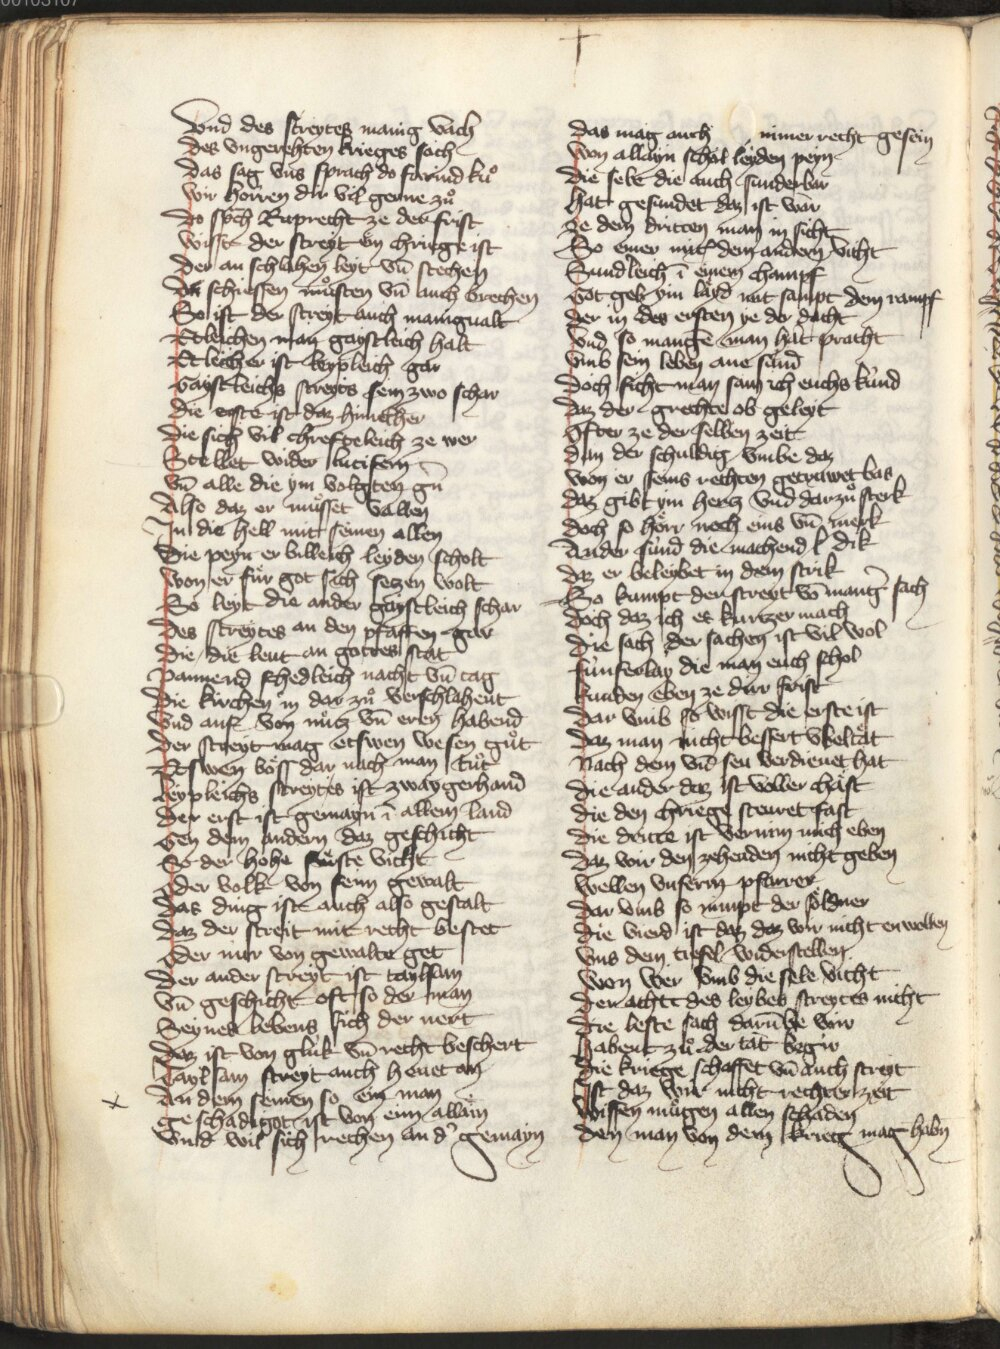 00103107
Vnd des streytes manig vach
Des vngerechten krieges sach
Das sag vns sprach do farind kuͦ
Wir horren dir vil gerne zuͦ
Do spͣch Ruprecht ze der frist
Wisst der streyt ein chriege ist
Der an schlahen leyt vn̄ stechen
schiessen muͤsten vn̄ auch brechen
So ist der streyt auch manigualt
Etleichen man gaystleich halt
Etleicher ist leypleich gar
Gaystleichs streytes sein zwo schar
Die erste ist daz himelher
Die sich vil chrefgeleich ze wer
Stellet wider lucifern
Vn̄ alle die ym volgten gn̄
Also daz er muͤsset vallen
In die hell mitt seinen allen
Die peyn er billeich leyden scholt
Won er fuͤr got sich setzen wolt
So leyt die ander gaystleich schar
Des streytes an den pfaffen gar
Die die leut an gottes stat
Pannend schedleich nacht vn̄ tag
Die kirchen in dar zuͦ verschlahent
Vnd auf von nuͤtz vn̄ eren habend
Der streyt mag etswen wesen guͦt
Etswen boͤss dar nach man tuͦt
Leypleichs streytes ist zwaygerhand
Der erst ist gemayn ī allem land
Gen dem andern daz geschicht
So der hohe fuͤrste vicht
Oder volk von seim gewalt
Das ding ist auch also gestalt
Daz der streit mit recht bestet
Oder nur von gewalte get
Der ander streyt ist taylsan
Vn̄ geschicht oft so der man
Seynes lebens sich der nert
Daz ist von gluͤk vn̄ recht beschert
Taylsam streyt auch hevet an
An dem seinen so ein man
Geschadigot ist von eim allain
Vnd wil sich rechen an dʼ gemayn
Das mag auch nimer recht gesein
Won allayn schol leyden pein
Die sele die auch sunderbar
Hat gesundet daz ist war
Ze dem dritten man in sicht
So einer mit dem andern vicht
Sundʼleich ī einem champf
Got geb ym layd mit sampt dem rampf
Der in des ersten ye der dacht
Vnd so mangē man hat pracht
Vmb sein leben ane sund
Doch sicht man sam ich euchs kuͤnd
Daz der grechte ob geleyt
Ofter ze der selben zeit
Dan der schuldig vmbe daz
Won er seins rechten getrawet bas
Daz gibt ym hertz vnd darzuͦ sterk
Doch so hoͤrr noch eins vn̄ merk
Ander suͤnd die machend dik
Daz er beleybet in dem strik
So kumpt der streyt vō mangʼ sach
Doch daz ich es kurtzer mach
Die sach der sachen ist vil wol
Fuͤnferlay die man euch schol
Kunden eben ze dirr frist
Dar vmb so wisst die erste ist
Daz man nicht bessert vbeltaͤt
Nach dem vn̄ seu verdienet hat
Die ander daz ist voller chast
Die den chriege steuret fast
Die dritte ist vernim mich eben
Daz wir den zehenden nicht geben
Wellen vnserm pfarrer
Dar vmb so nimpt der soͤldner
Die vierd ist daz daz wir nicht enwellen
Vns dem tiefel widerstellen
Won wer vmb die sele vicht
Der acht des leybes streytes nicht
Die leste sach darūbe wir
Habent zuͦ der tat begir
Die kriege schaffet vn̄ auch streyt
Ist daz wir nicht rechter zeit
Wissen muͤgen allen schaden
Den man von dem krieg mag habn̄